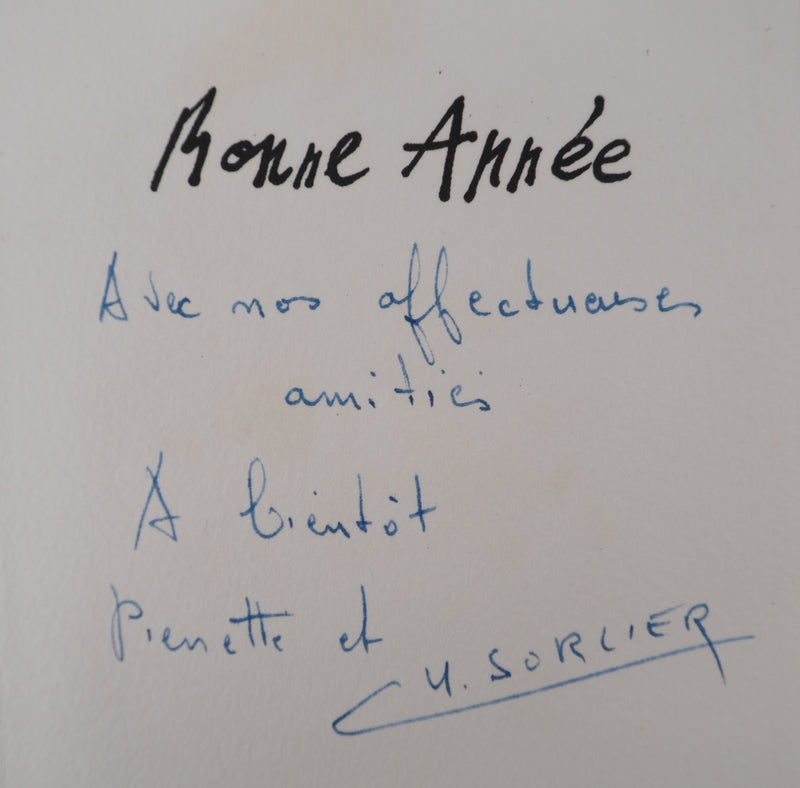 Bonne Année
Avec nos affectueuses
amitiés
A bientôt
Pierrette et
CH. SORLIER